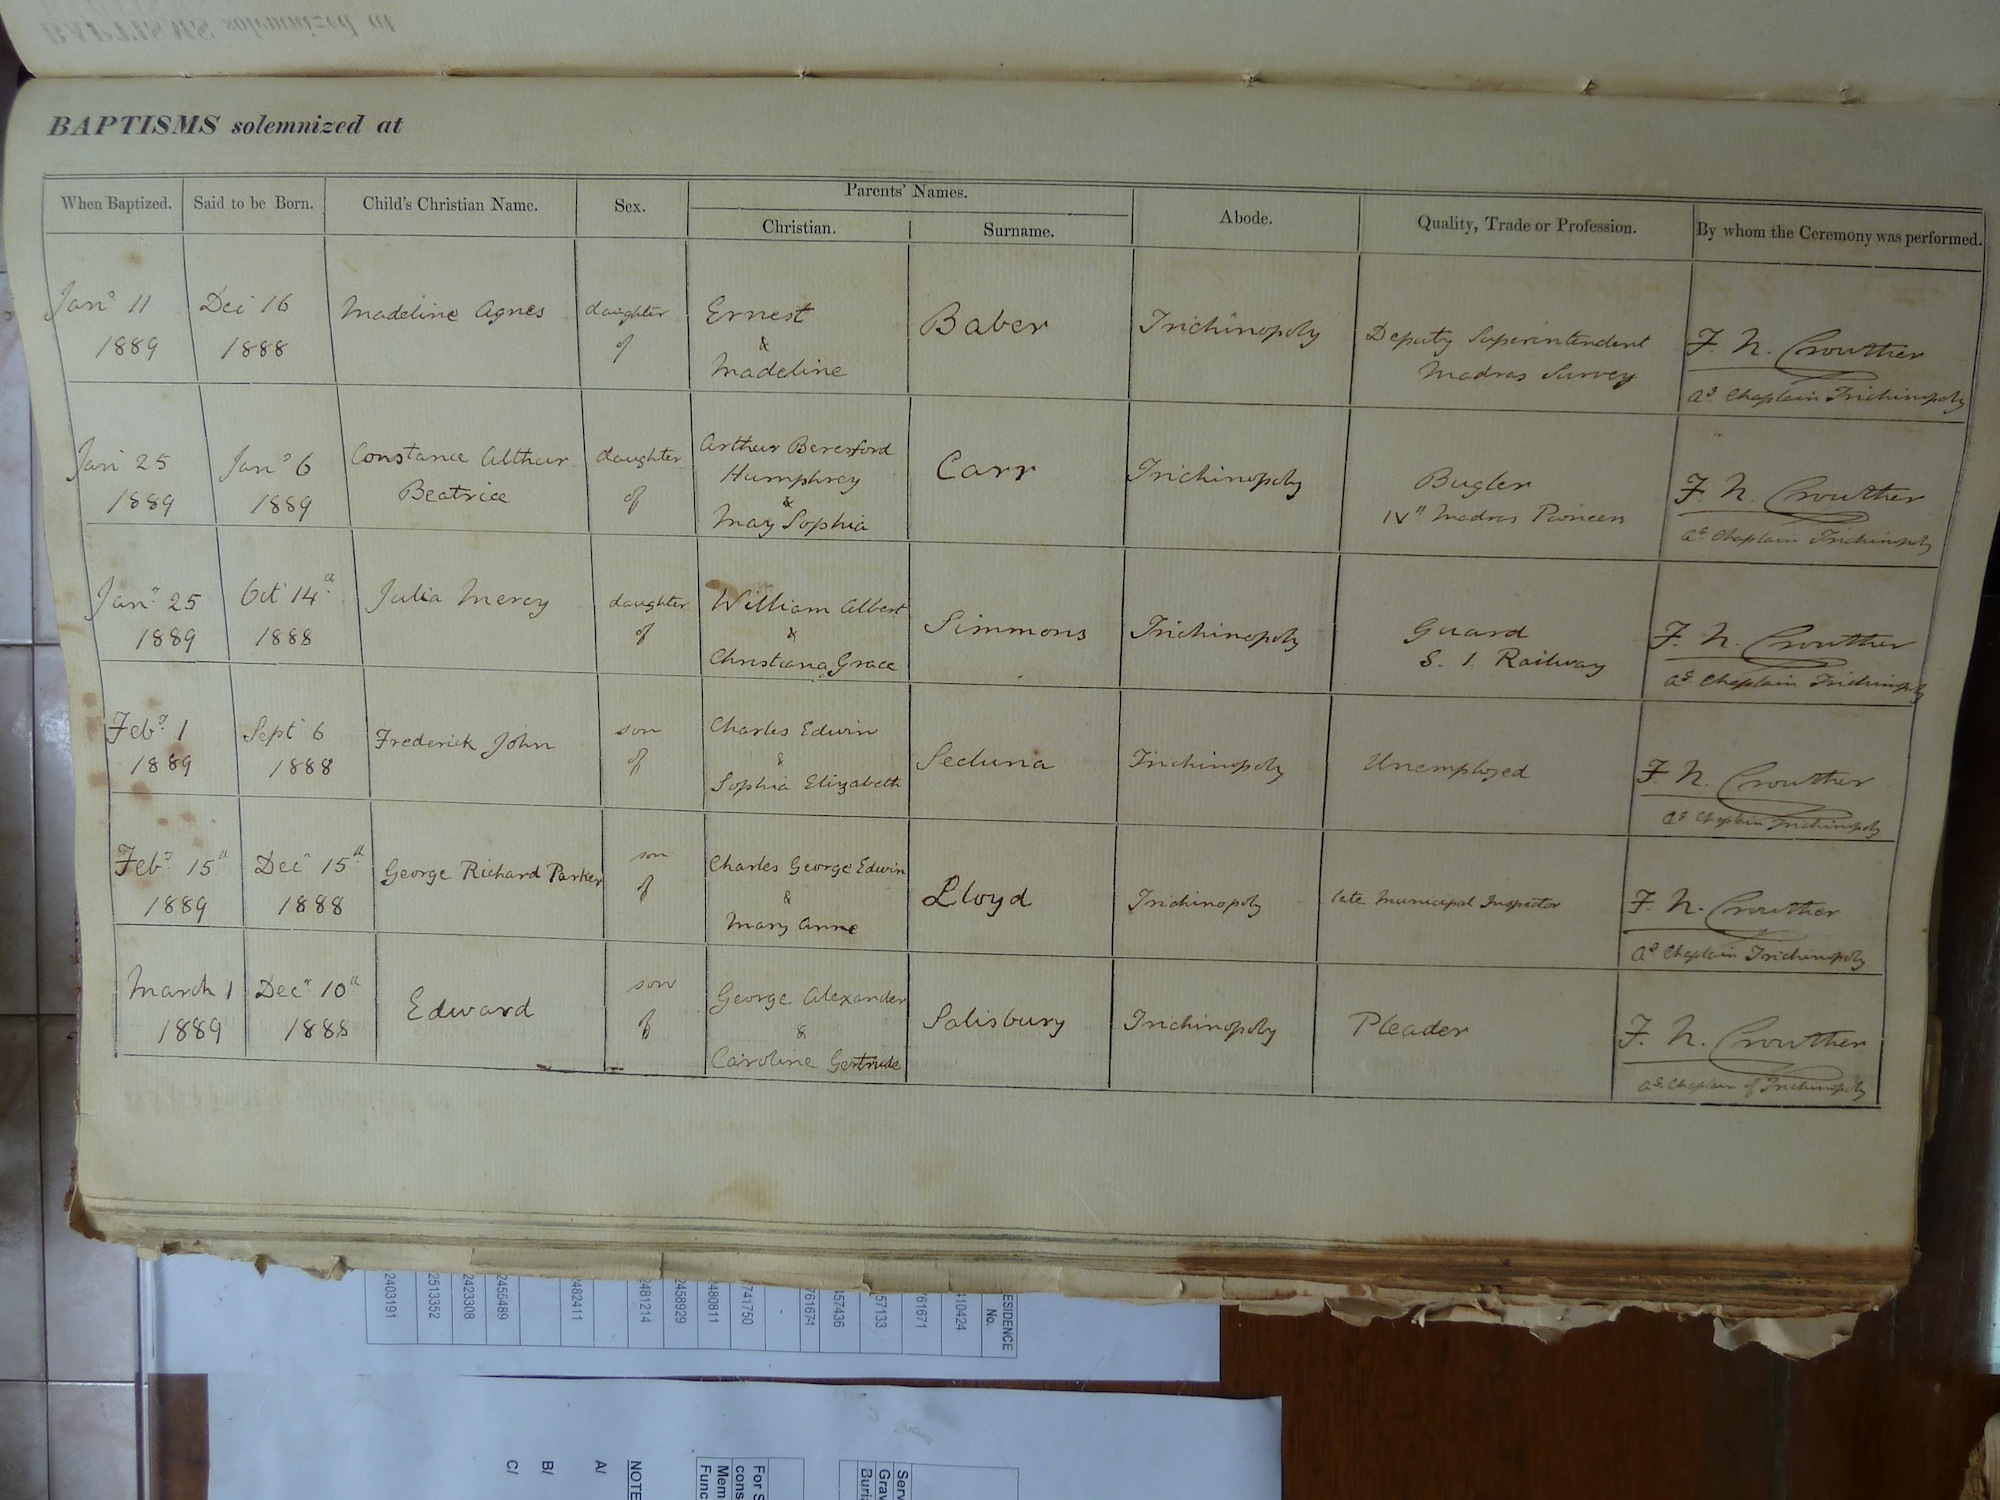 BAPTISMS solemnized at
When Baptized. Said to be Born. Child's Christian Name. Sex. Parents' Names. Christian. Surname. Abode. Quality, Trade or Profession. By whom the Ceremony was performed.
Jany 11 1889 Decr 16 1888 Madeline Agnes daughter of Ernest & Madeline Baber Trichinopoly Deputy Superintendent Madras Survey F. N. Crowther Ag Chaplain Trichinopoly
Jan 25 1889 Jany 6 1889 Constance Althur Beatrice daughter of Arthur Beresford Humphrey & May Sophia Carr Trichinopoly Bugler IVth Madras Pioneers F. N. Crowther Ag Chaplain Trichinopoly
Jany 25 1889 Oct 14th 1888 Julia Mercy daughter of William Albert & Christiana Grace Simmons Trichinopoly Guard S. I. Railway F. N. Crowther Ag Chaplain Trichinopoly
Feby 1 1889 Sept 6 1888 Frederick John son of Charles Edwin & Sophia Elizabeth Seduna Trichinopoly Unemployed F. N. Crowther Ag Chaplain Trichinopoly
Feby 15th 1889 Decr 15th 1888 George Richard Parker son of Charles George Edwin & Mary Anne Lloyd Trichinopoly late Municipal Inspector F. N. Crowther Ag Chaplain Trichinopoly
March 1 1889 Decr 10th 1888 Edward son of George Alexander & Caroline Gertrude Salisbury Trichinopoly Pleader F. N. Crowther Ag Chaplain of Trichinopoly
RESIDENCE No.
410424
761671
57133
457436
761671
741750
-
480811
2458929
2481214
2482411
2455489
2423308
2513352
2403191
NOTE
A/
B/
C/
For S
cons
Mem
Func
Serv
Grav
Buri